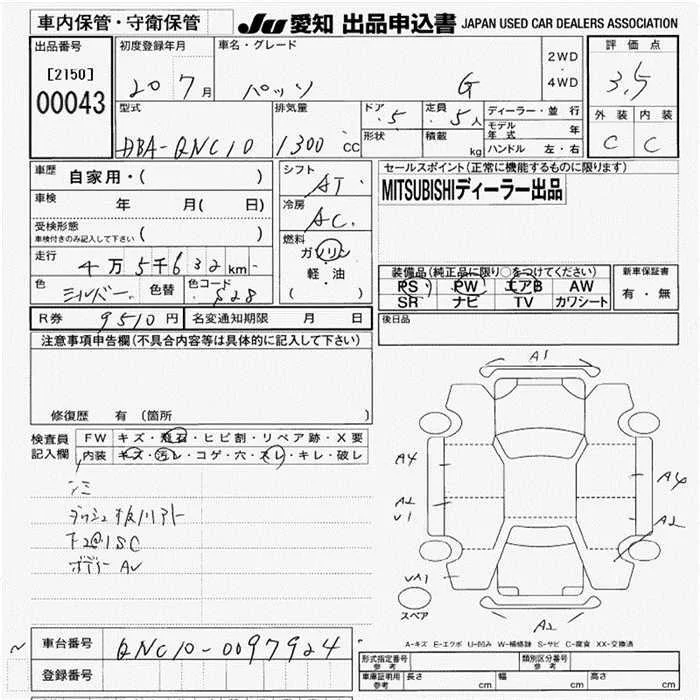 車内保管・守衛保管
JU 愛知 出品申込書 JAPAN USED CAR DEALERS ASSOCIATION
出品番号
[2150]
00043
初度登録年月
20 7月
車名・グレード
パッソ G
2WD
・
4WD
評価点
3.5
外装 内装
C C
型式
DBA-QNC10
排気量
1300 cc
ドア 5
形状
定員 5人
積載 kg
ディーラー・並行
モデル年式 年
ハンドル 左・右
車歴 自家用・( )
車検 年 月( 日)
受検形態
車検付きのみ記入して下さい ( )
走行 4万5千632km
色 シルバー 色替 色コード S28
シフト AT
冷房 AC
燃料
ガソリン
軽・油
( )
セールスポイント(正常に機能するものに限ります)
MITSUBISHIディーラー出品
装備品(純正品に限り○をつけてください)
PS PW エアB AW
SR ナビ TV カワシート
新車保証書
有・無
R券 9510円 名変通知期限 月 日
後日品
注意事項申告欄(不具合内容等は具体的に記入して下さい)
修復歴 有(箇所 )
検査員記入欄
FW キズ・飛石・ヒビ割・リペア跡・X要
内装 キズ・汚レ・コゲ・穴・スレ・キレ・破レ
シミ
ボデー AU
A1
A4
A2
V1
A4
A2
VA1
スペア
A2
A-キズ E-エクボ U-凹み W-補修跡 S-サビ C-腐食 XX-交換済
車台番号 QNC10-0097924
登録番号
形式指定番号
参考
類別区分番号
参考
車庫証明用
参考
長さ cm 幅 cm 高さ cm